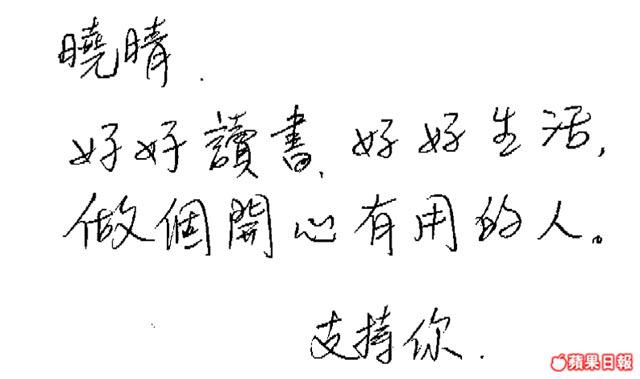 曉晴.
好好讀書, 好好生活,
做個開心有用的人。
支持你.
蘋果日報